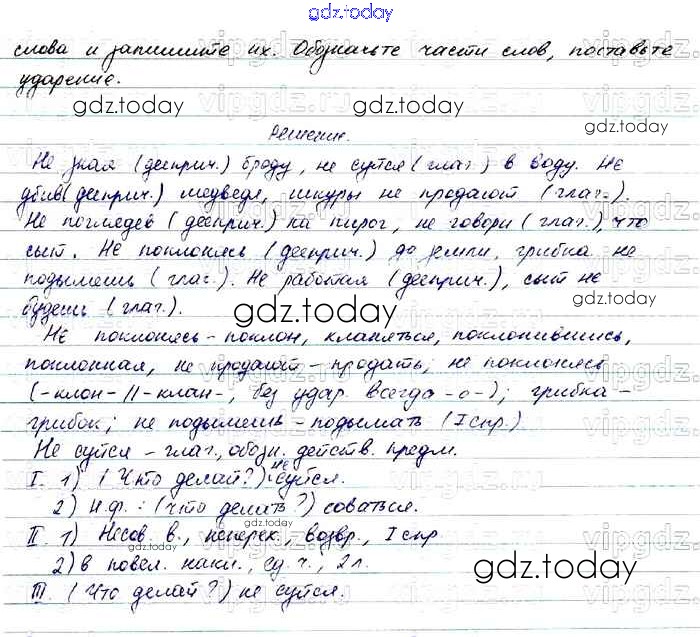 gdz.today
слова и запишите их. Обозначьте части слов, поставьте
ударение.
gdz.today
gdz.today
Решение.
Не зная (дееприч.) броду, не суйся (глаг.) в воду. Не
убив (дееприч.) медведя, шкуры не продают (глаг.).
Не поглядев (дееприч.) на пирог, не говори (глаг.), что
сыт. Не поклонясь (дееприч.) до земли, грибка не
подымешь (глаг.). Не работая (дееприч.), сыт не
будешь (глаг.).
gdz.today
gdz.today
Не поклонясь - поклон, кланяться, поклонившись,
поклонная, не продают - продать; не поклонясь
(-клон-//-клан-, без удар. всегда -о-); грибка -
грибок; не подымешь - подымать (I спр.)
Не суйся - глаг., обозн. действ. предм.
I. 1) (Что делай?) не суйся.
2) Н.ф.: (что делать?) соваться.
gdz.today
II. 1) Несов. в., неперех., возвр., I спр
gdz.today
2) в повел. накл., ед. ч., 2 л.
gdz.today
III. (Что делай?) не суйся.